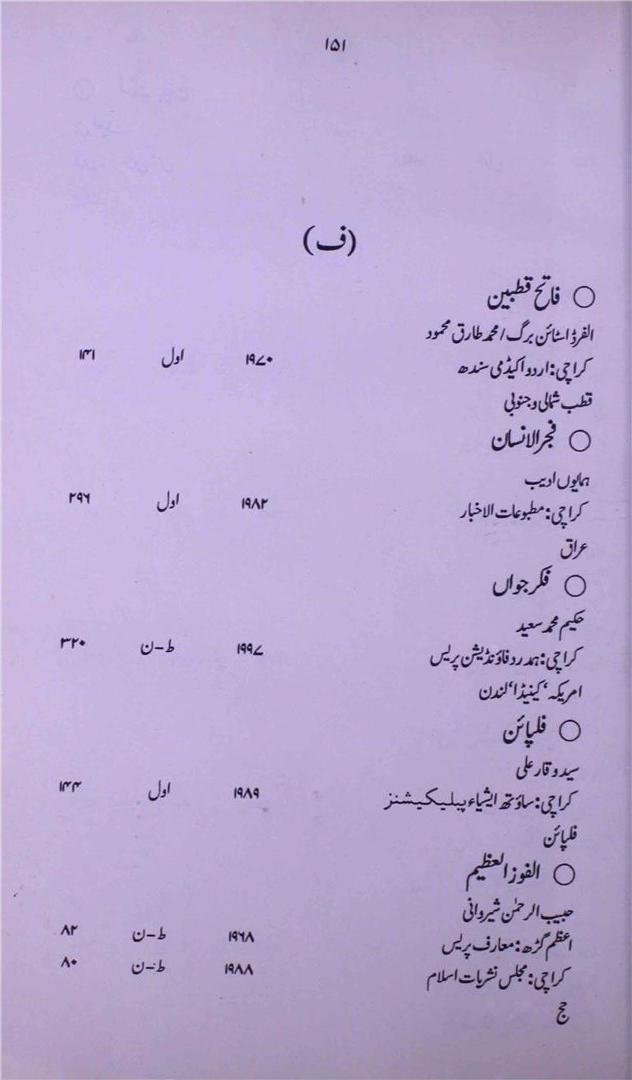 ۱۵۱
(ف)
○ فاتح قطبین
الفرڈ اسٹائن برگ / محمد طارق محمود
کراچی: اردو اکیڈمی سندھ ۱۹۷۰ اول ۱۴۱
قطب شمالی و جنوبی
○ فجر الانسان
ہمایوں ادیب
کراچی: مطبوعات الاخبار ۱۹۸۲ اول ۲۹۶
عراق
○ فکر جواں
حکیم محمد سعید
کراچی: ہمدرد فاؤنڈیشن پریس ۱۹۹۷ ط-ن ۳۲۰
امریکہ، کینیڈا، لندن
○ فلپائن
سید وقار علی
کراچی: ساؤتھ ایشیاء پبلیکیشنز ۱۹۸۹ اول ۱۴۴
فلپائن
○ الفوز العظیم
حبیب الرحمٰن شیروانی
اعظم گڑھ: معارف پریس ۱۹۶۸ ط-ن ۸۲
کراچی: مجلس نشریات اسلام ۱۹۸۸ ط-ن ۸۰
حج